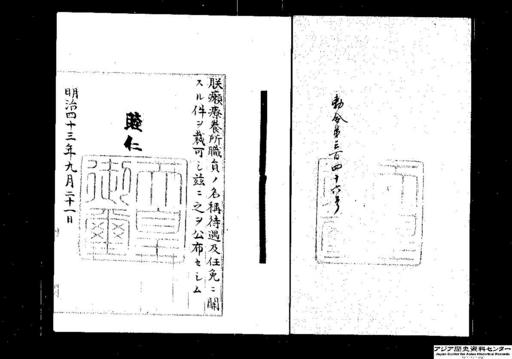 勅令第三百四十六号
朕癩療養所職員ノ名称待遇及任免ニ関
スル件ヲ裁可シ玆ニ之ヲ公布セシム
睦仁
天皇
御璽
明治四十三年九月二十一日
アジア歴史資料センター
Japan Center for Asian Historical Records